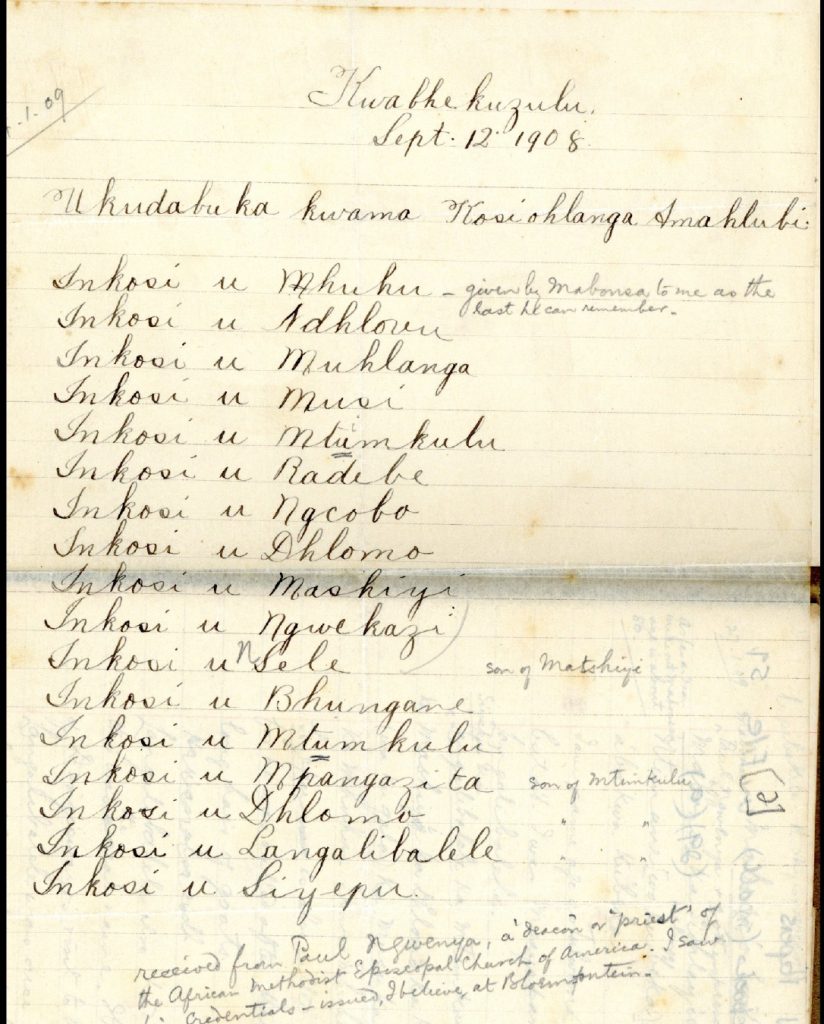 .1.09
Kwabhekuzulu.
Sept. 12. 1908.
Ukudabuka kwama Kosi ohlanga Amahlubi.
Inkosi u Mhuhu – given by Mabonsa to me as the
last he can remember.
Inkosi u Ndhlovu
Inkosi u Muhlanga
Inkosi u Musi
Inkosi u Mtumkulu
Inkosi u Radebe
Inkosi u Ngcobo
Inkosi u Dhlomo
Inkosi u Mashiyi
Inkosi u Ngwekazi
Inkosi u NSele son of Matshiyi
Inkosi u Bhungane
Inkosi u Mtumkulu
Inkosi u Mpangazita son of Mtimkulu
Inkosi u Dhlomo " "
Inkosi u Langalibalele " "
Inkosi u Siyepu.
received from Paul Ngwenya, a 'deacon' or "priest" of
the African Methodist Episcopal Church of America. I saw
his credentials – issued, I believe, at Bloemfontein.